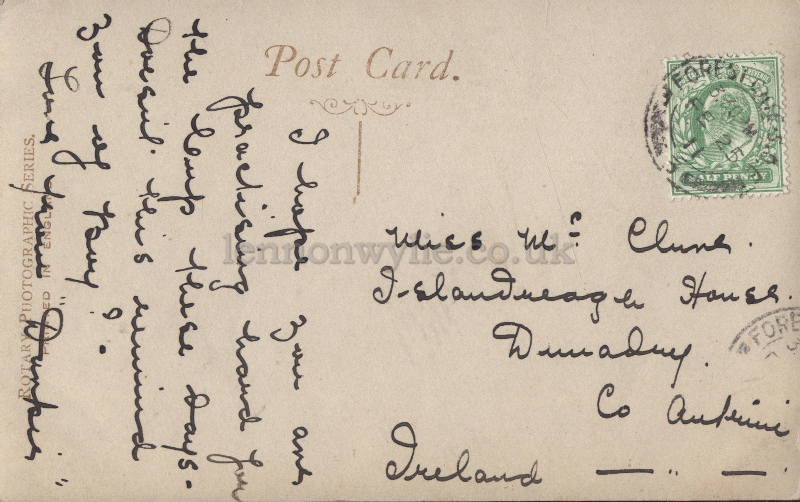 Post Card.
I hope you are
practising hard for
the Cup these days.
Doesn't this remind
you of Puy?.
Love from "Dunkie"
ROTARY PHOTOGRAPHIC SERIES.
PRINTED IN ENGLAND
Miss Mc Clure.
Islandreagh House.
Dunadry.
Co Antrim
Ireland — " —
FOREST
HALF PENNY
FORE
lennonwylie.co.uk